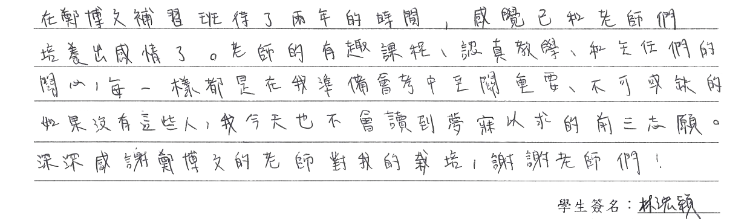 在鄭博文補習班待了兩年的時間，感覺已和老師們
培養出感情了。老師的有趣課程、認真教學、和主任們的
關心，每一樣都是在我準備會考中至關重要、不可或缺的
如果沒有這些人，我今天也不會讀到夢寐以求的前三志願。
深深感謝鄭博文的老師對我的栽培，謝謝老師們！
學生簽名：林泓穎